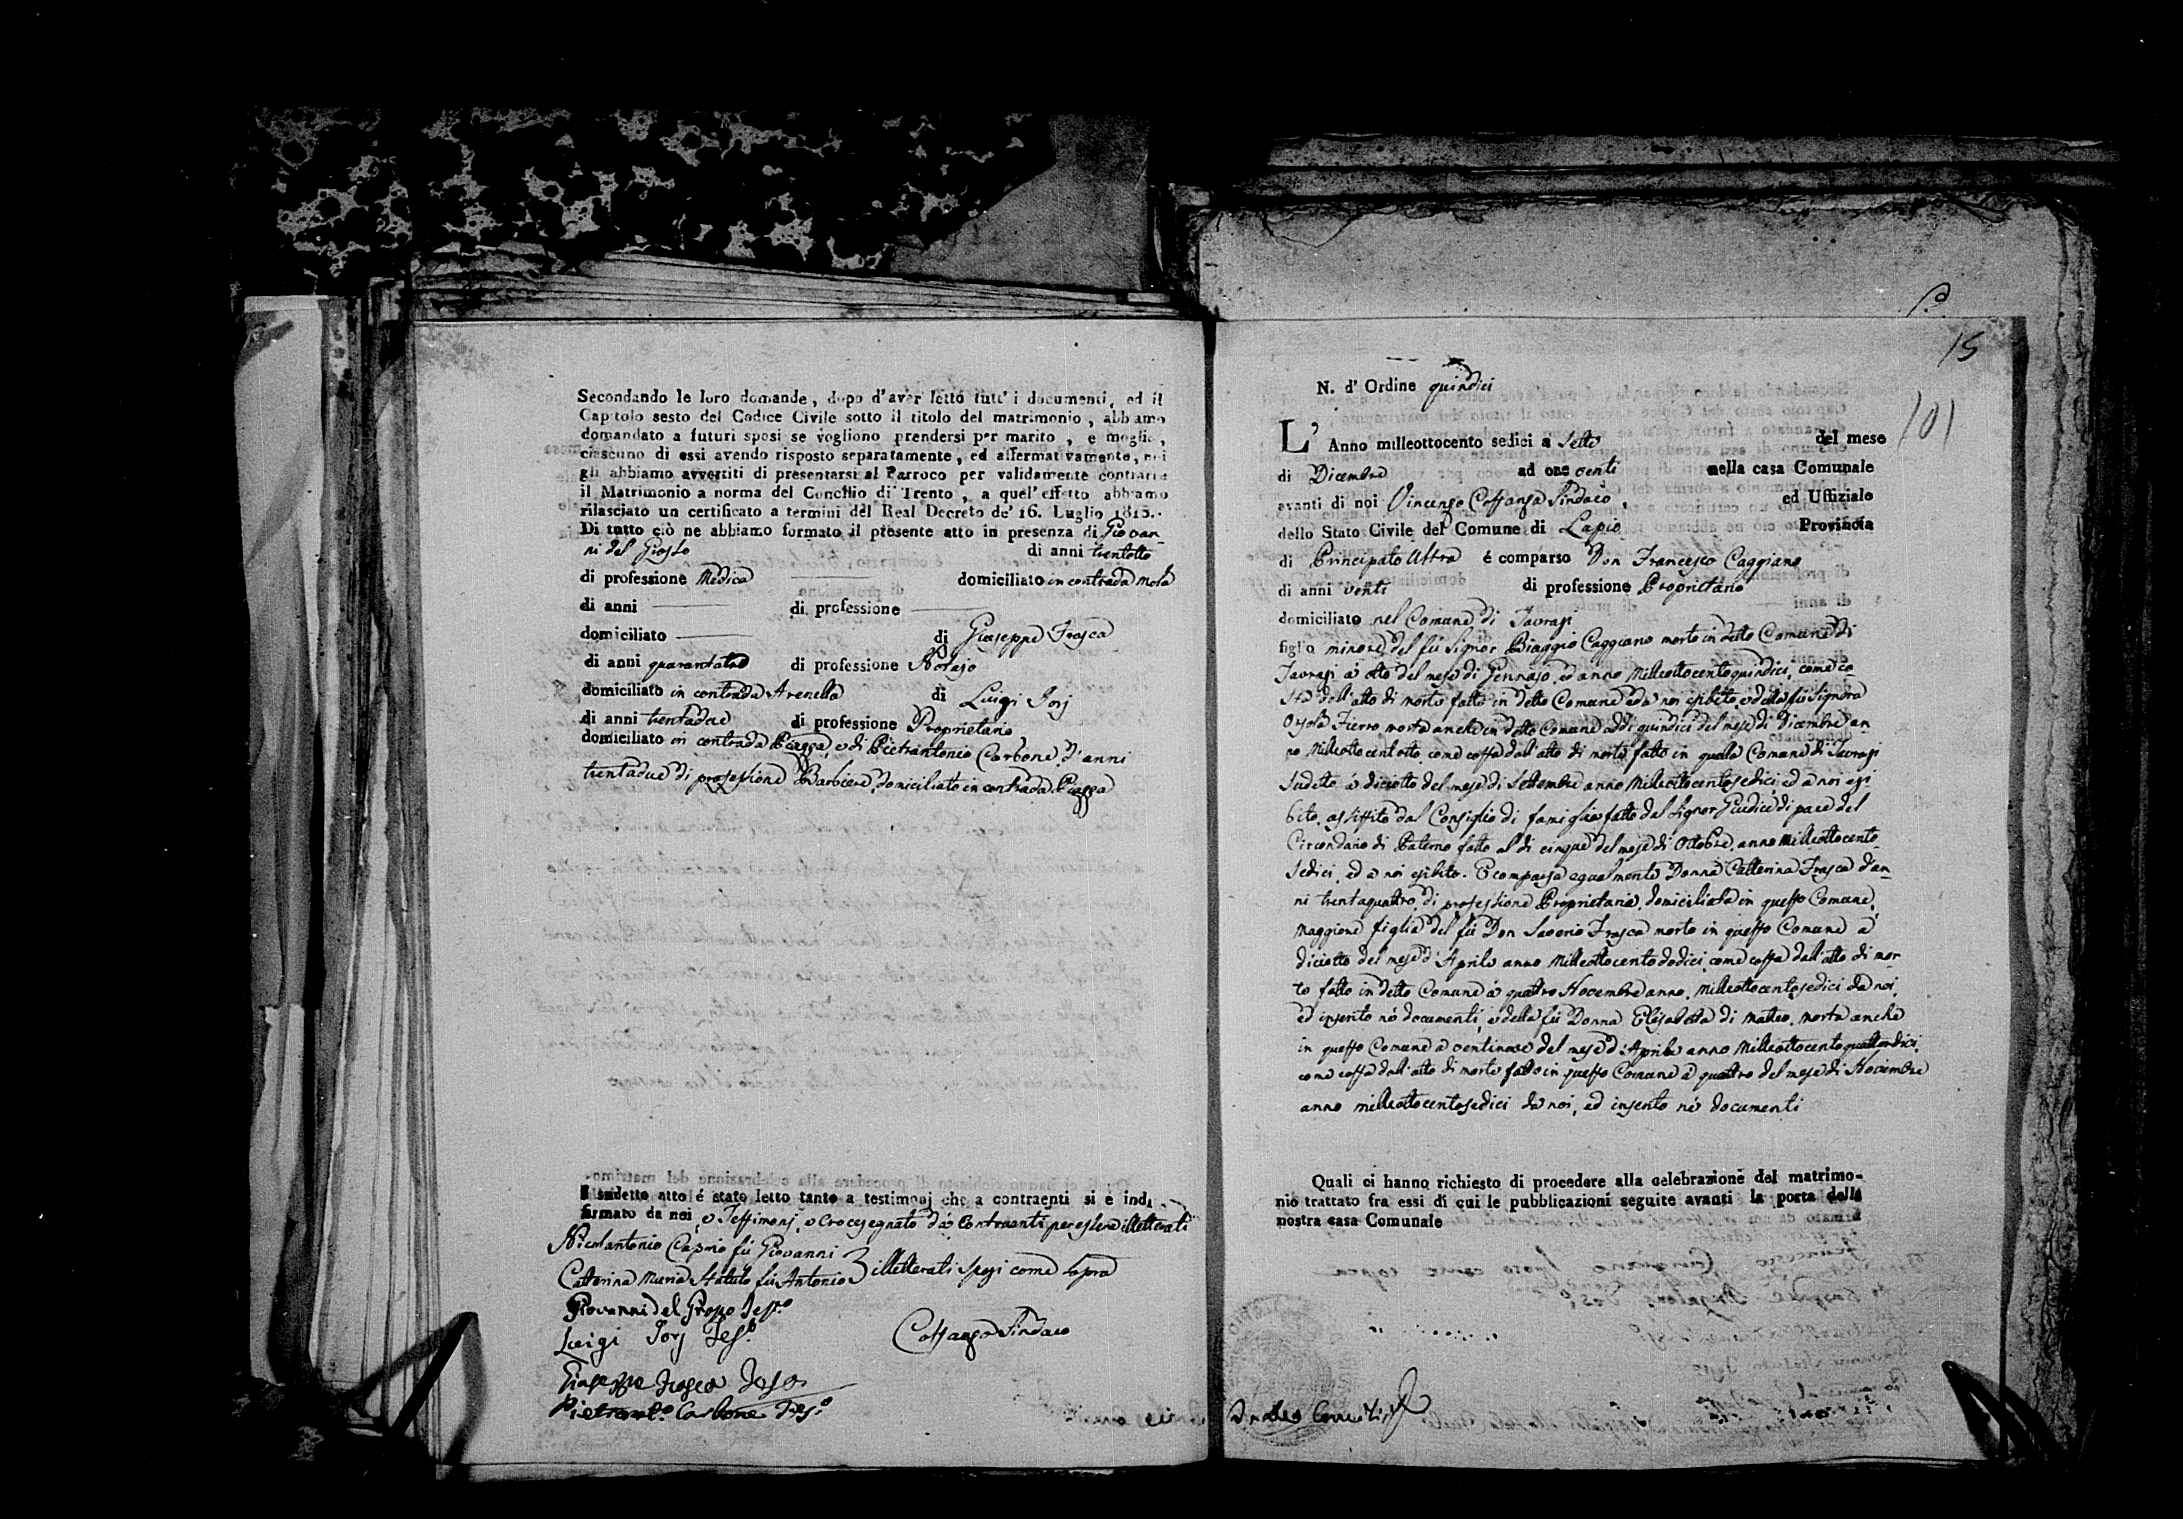 Secondando le loro domande, dopo d'aver letto tutt' i documenti, ed il
Capitolo sesto del Codice Civile sotto il titolo del matrimonio, abbiamo
domandato a futuri sposi se vogliono prendersi per marito, e moglie,
ciascuno di essi avendo risposto separatamente, ed affermativamente, noi
gli abbiamo avvertiti di presentarsi al Parroco per validamente contrarre
il Matrimonio a norma del Concilio di Trento, a quel' effetto abbiamo
rilasciato un certificato a termini del Real Decreto de' 16. Luglio 1815.
Di tutto ciò ne abbiamo formato il presente atto in presenza di Giovan-
ni del Grosso di anni trentotto
di professione Medico domiciliato in contrada Mola
di anni di professione
domiciliato di Giuseppe Frasca
di anni quarantatre di professione Notajo
domiciliato in contrada Arenella di Luigi Iorj
di anni trentadue di professione Proprietario
domiciliato in contrada Piazza, e di Pietrantonio Carbone d'anni
trentadue di professione Barbiere, domiciliato in contrada Piazza
Il sudetto atto é stato letto tanto a testimonj che a contraenti si è indi
firmato da noi, e Testimonj, e Crocesegnato dà Contraenti per essere illetterati
Nicolantonio Caprio fù Giovanni
Catterina Maria Statuto fù Antonio illetterati Sposi come sopra
Giovanni del Grosso Test.o
Luigi Iorj Tes.o
Cossanza Sindaco
Giuseppe Frasca Tes.o
Pietrant.o Carbone Tes.o
15
101
N. d' Ordine quindici
L' Anno milleottocento sedici a Sette del mese
di Dicembre ad ore venti nella casa Comunale
avanti di noi Vincenzo Cossanza Sindaco, ed Uffiziale
dello Stato Civile del Comune di Lapio Provincia
di Principato Ultra é comparso Don Francesco Caggiano
di anni venti di professione Proprietario
domiciliato nel Comune di Taurasi
figlio minore del fù Signor Biaggio Caggiano morto in detto Comune di
Taurasi à otto del mese di Gennajo, ed anno Milleottocentoquindici, come co-
sta dall'atto di morte fatto in detto Comune eda noi esibito, e della fù Signora
Fierro, morta anche in detto Comune addi quindici del mese di Dicembre an-
no Milleottocentotto, come costa dall'atto di morte fatto in quale Comune di Taurasi
sudetto à diciotto del mese di Settembre anno Milleottocentosedici, ed a noi esi-
bito, assistito dal Consiglio di famiglia fatto dal Signor Giudice di pace del
Circondario di Paterno fatto al di cinque del mese di Ottobre, anno Milleottocento
Sedici, ed a noi esibito. E comparsa egualmente Donna Catterina Frasca d'an-
ni trentaquattro, di professione Proprietaria, domiciliata in questo Comune,
maggiore figlia del fù Don Saverio Frasca morto in questo Comune à
diciotto del mese d'Aprile anno Milleottocentododici, come costa dall'atto di mor-
te fatto in detto Comune à quattro Novembre anno, Milleottocentosedici da noi,
ed inserito né documenti, e della fù Donna Elisabetta di Matteo, morta anche
in questo Comune a ventinove del mese d'Aprile anno Milleottocentoquattordici,
come costa dall'atto di morte fatto in questo Comune à quattro del mese di Novembre
anno milleottocentosedici da noi, ed inserito né documenti
Quali ci hanno richiesto di procedere alla celebrazione del matrimo-
nio trattato fra essi di cui le pubblicazioni seguite avanti la porta della
nostra casa Comunale